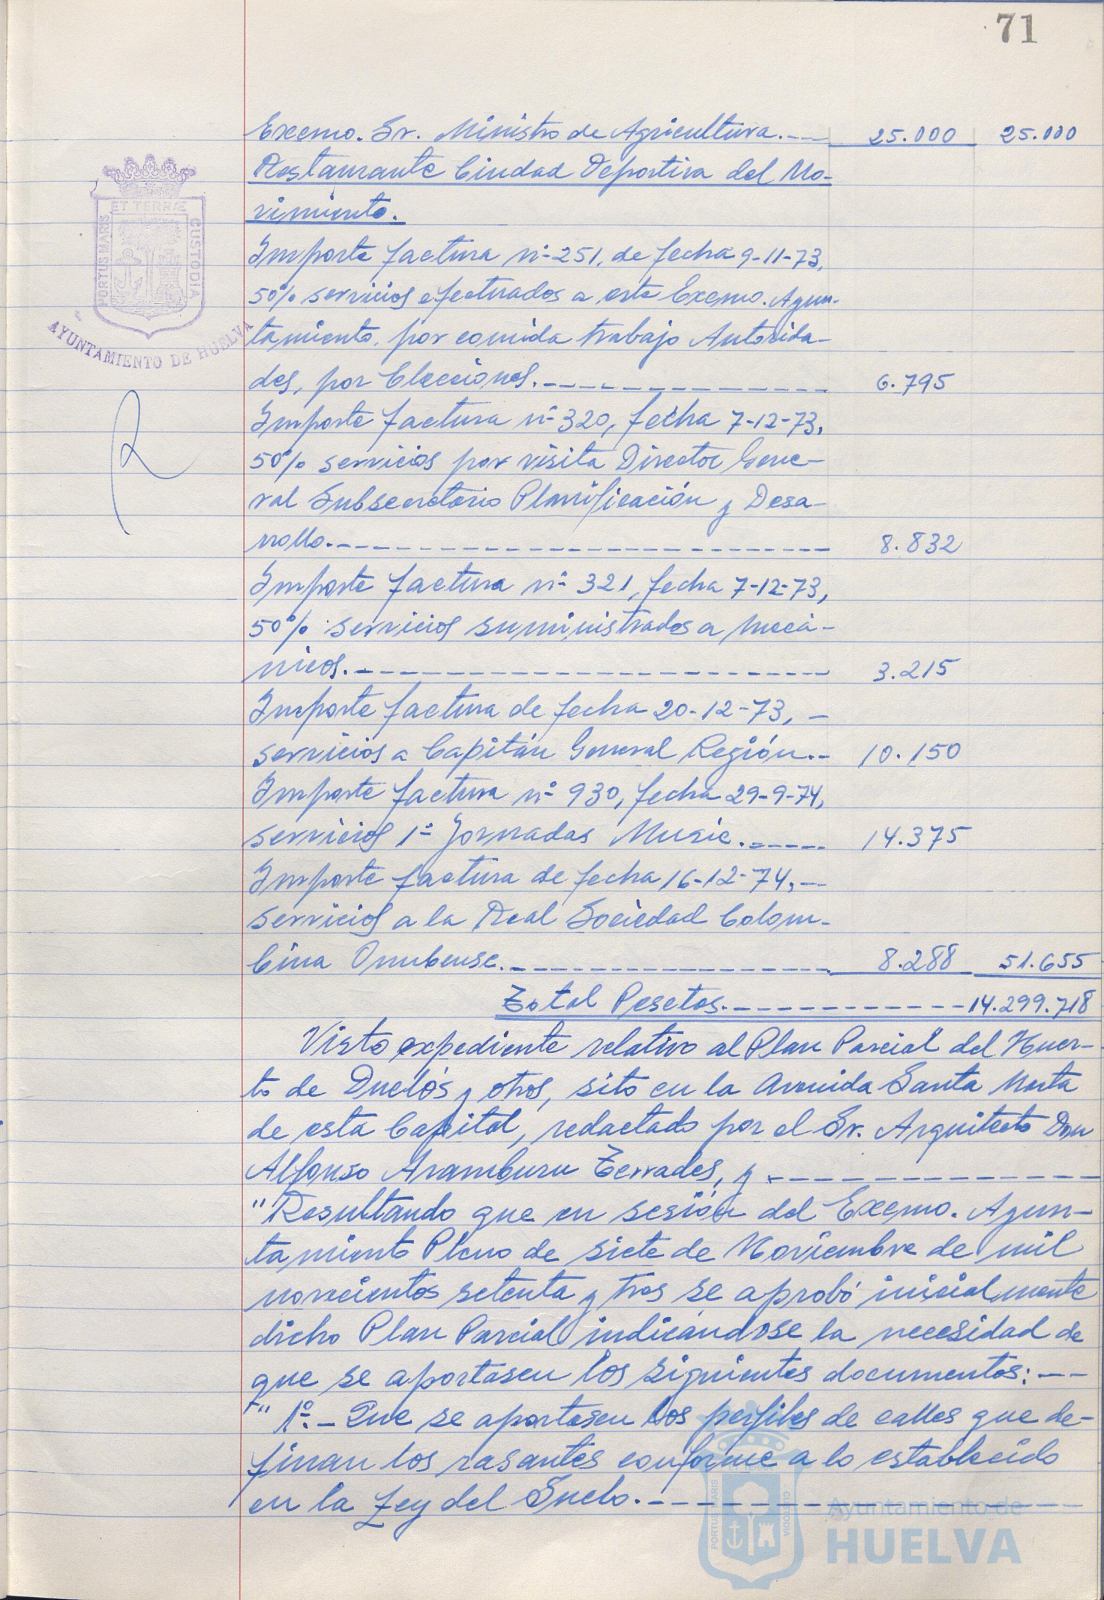 71
Excmo. Sr. Ministro de Agricultura.-- 25.000 25.000
Restaurante Ciudad Deportiva del Mo-
vimiento.
Importe factura nº 251, de fecha 9-11-73,
50% servicios efectuados a este Excmo. Ayun-
tamiento, por comida trabajo Autorida-
des, por Elecciones.------------ 6.795
Importe factura nº 320, fecha 7-12-73,
50% servicios por visita Director Gene-
ral Subsecretario Planificación y Desa-
rrollo.------------------ 8.832
Importe factura nº 321, fecha 7-12-73,
50% servicios suministrados a mecá-
nicos.------------------ 3.215
Importe factura de fecha 20-12-73, -
servicios a Capitán General Región.-- 10.150
Importe factura nº 930, fecha 29-9-74,
servicios 1ª Jornadas Music.----- 14.375
Importe factura de fecha 16-12-74,--
servicios a la Real Sociedad Colom-
bina Onubense.------------ 8.288 51.655
Total Pesetas.------------14.299.718
Visto expediente relativo al Plan Parcial del Huer-
to de Duclós y otros, sito en la Avenida Santa Marta
de esta Capital, redactado por el Sr. Arquitecto Don
Alfonso Aramburu Terrades, y ------------
"Resultando que en sesión del Excmo. Ayun-
tamiento Pleno de siete de Noviembre de mil
novecientos setenta y tres se aprobó inicialmente
dicho Plan Parcial indicándose la necesidad de
que se aportasen los siguientes documentos:---
" 1º.- Que se aportasen los perfiles de calles que de-
finan las rasantes conforme a lo establecido
en la Ley del Suelo.------------
PORTUS MARIS ET TERRÆ CUSTODIA
AYUNTAMIENTO DE HUELVA
PORTUS MARIS CUSTODIA
Ayuntamiento de
HUELVA